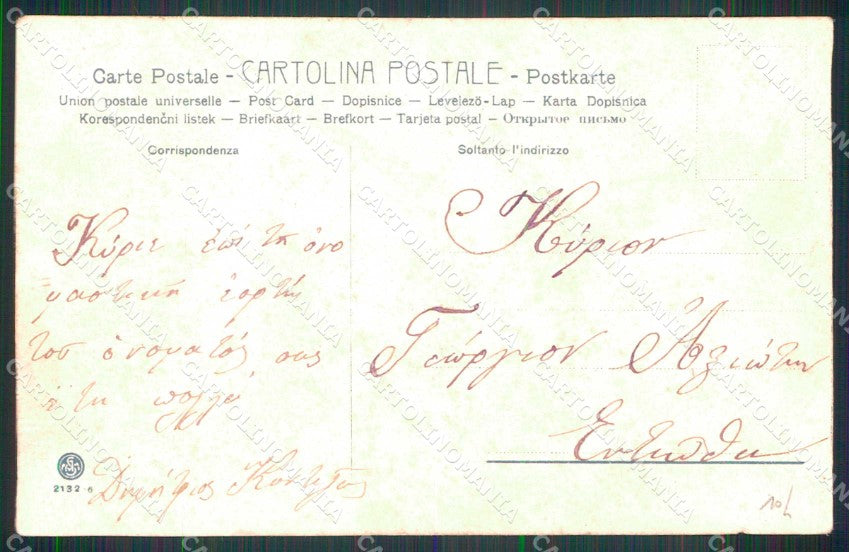 Carte Postale - CARTOLINA POSTALE - Postkarte
Union postale universelle — Post Card — Dopisnice — Levelező-Lap — Karta Dopisnica
Korespondenční listek — Briefkaart — Brefkort — Tarjeta postal — Открытое письмо
Corrispondenza
Soltanto l'indirizzo
Κύριε ἐπί τῇ ὀνο
μαστικῇ ἑορτῇ
τοῦ ὀνόματός σας
ἔτη πολλά
Δημήτριος
2132 6
Κύριον
Γεώργιον Ἀξιώτην
Ἐνταῦθα
CARTOLINOMANIA